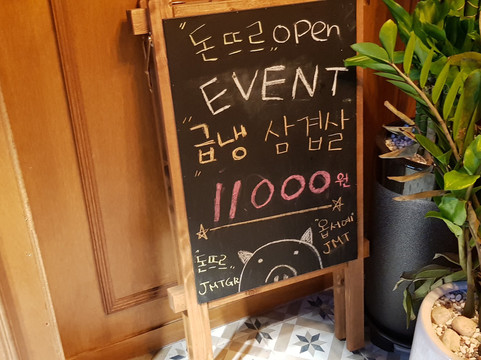 "돈뜨르" open
EVENT
"급냉 삼겹살
11000원
"돈뜨르"
JMTGR
"옵서예"
JMT